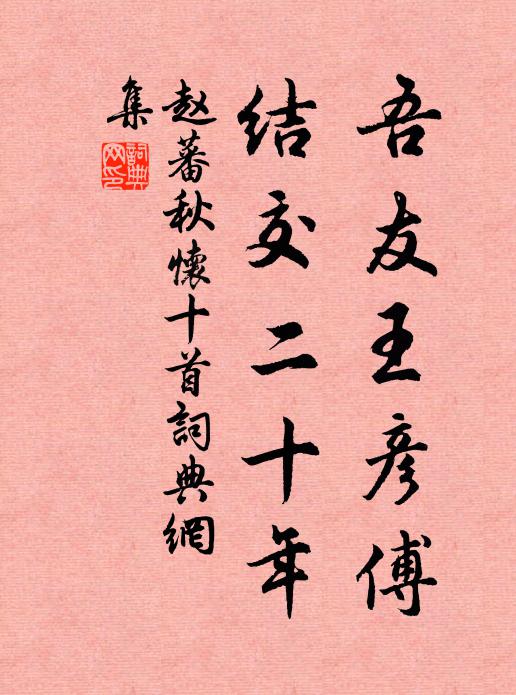 吾友王彦傅
结交二十年
赵蕃秋懷十首詞典網
集
詞典
网印